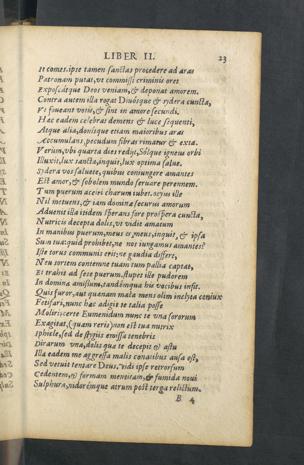 LIBER II. 23
It comes. ipse tamen sanctas procedere ad aras
Patronam putat, ut commissi criminis ores
Exposcatque Deos veniam, & deponat amorem.
Contra autem illa rogat Divósque & sydera cuncta,
Ut foveant votis, & sint in amore secundi.
Hac eadem celebras demens & luce sequenti,
Atque alia, donisque etiam maioribus aras
Accumulans, pecudum fibras rimatur & exta.
Verùm, ubi quarta dies redijt, Sólque igneus orbi
Illuxit, lux sancta, inquit, lux optima salve.
Sydera vos salvete, quibus coniungere amantes
Est amor, & sobolem mundo servare perennem.
Tum puerum acciri charum iubet. ocyus ille
Nil metuens, & iam domina securus amorum
Advenit. illa itidem sperans fore prospera cuncta,
Nutricis decepta dolis, ut vidit amatum
In manibus puerum, meus es, meus, inquit, & ipsa
Sum tua: quid prohibet, ne nos iungamus amantes?
Iste torus communis erit: ne gaudia differ,
Neu sortem contemne tuam. tum pallia captat,
Et trahit ad sese puerum. stupet ille pudorem
In domina amissum, tandémque his vocibus infit.
Quis furor, aut quænam mala mens olim inclyta coniux
Putifari, nunc hac adigit te talia posse
Moliri: certe Eumenidum nunc te una sororum
Exagitat, (quam veris) non est tua nutrix
Iphicle, sed de stygijs emissa tenebris
Dirarum una, dolis quæ te decepit & astu
Illa eadem me aggressa malis conatibus ausa est,
Sed vetuit tentare Deus. vidi ipse retrorsum
Cedentem, & formam mentitam, & fumida novi
Sulphura, nidorémque atrum post terga relictum.
B 4